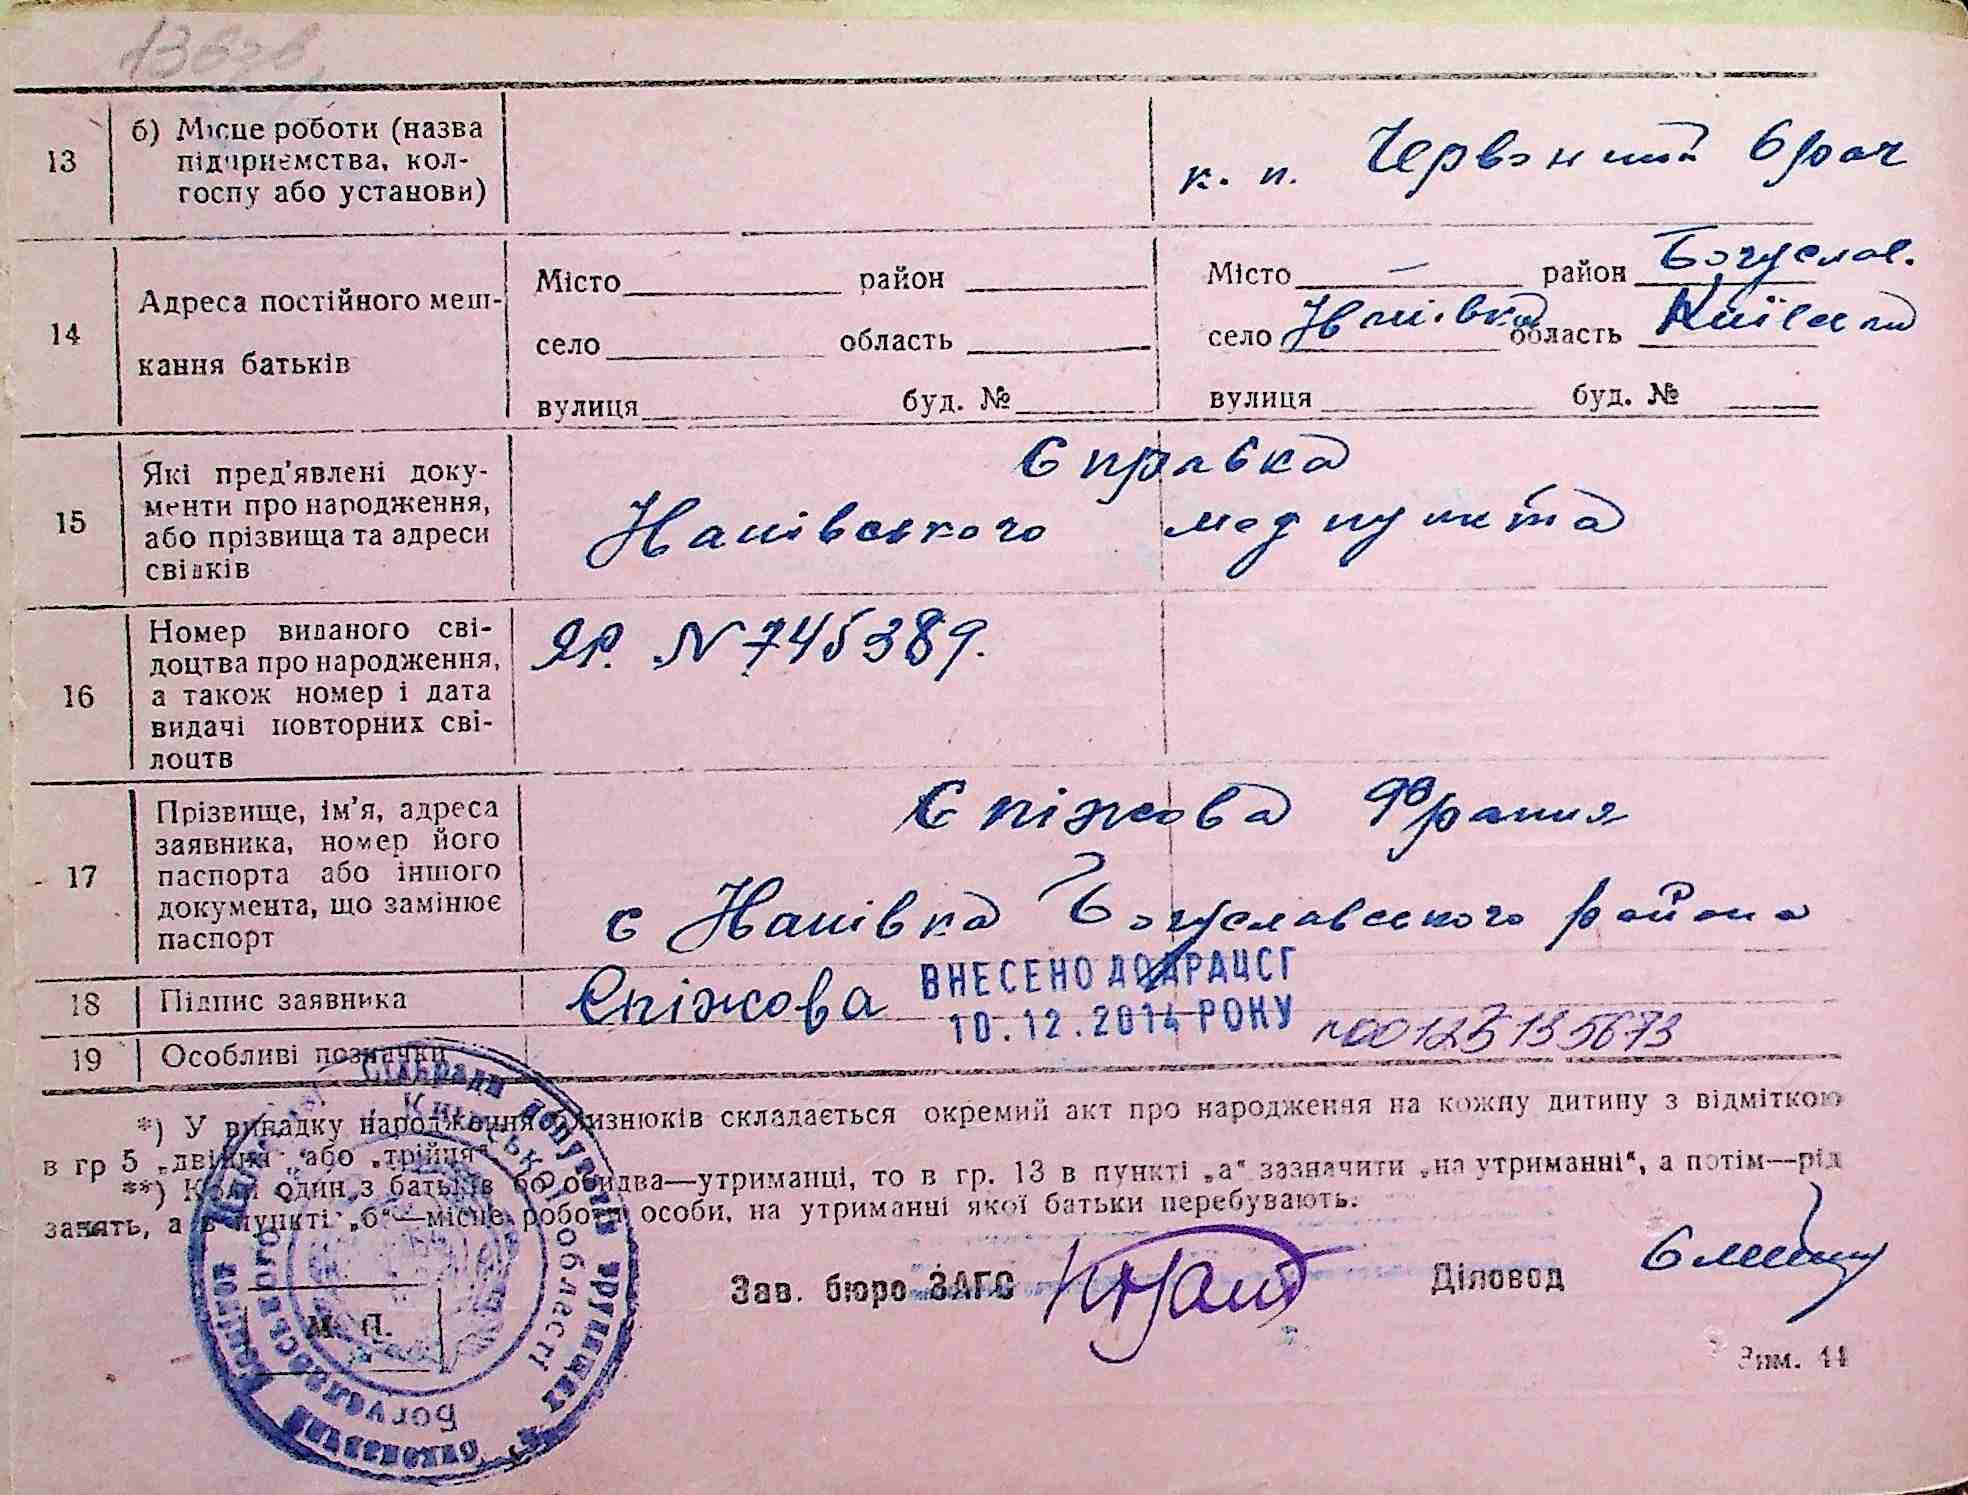 13
б) Місце роботи (назва
підприємства, кол-
госпу або установи)
к. п. Червоний
14
Адреса постійного меш-
кання батьків
Місто район
село область
вулиця буд. №
Місто — район Богуслав.
село область Київська
вулиця буд. №
15
Які пред'явлені доку-
менти про народження,
або прізвища та адреси
свідків
Справка
медпункта
16
Номер виданого сві-
доцтва про народження,
а також номер і дата
видачі повторних сві-
доцтв
ЯР. N 745389.
17
Прізвище, ім'я, адреса
заявника, номер його
паспорта або іншого
документа, що замінює
паспорт
Спіжова
с Богуславського района
18
Підпис заявника
Спіжова
ВНЕСЕНО ДО ДРАЦСГ
10.12.2014 РОКУ
19
Особливі позначки
00125135673
*) У випадку народження близнюків складається окремий акт про народження на кожну дитину з відміткою
в гр 5 „двійня“ або „трійця“.
**) Коли один з батьків бо обидва—утриманці, то в гр. 13 в пункті „а“ зазначити „на утриманні“, а потім—рід
занять, а в пункті „б“—місце роботи особи, на утриманні якої батьки перебувають.
Зав. бюро ЗАГС
Діловод
М. П.
Київської області
Богуславського